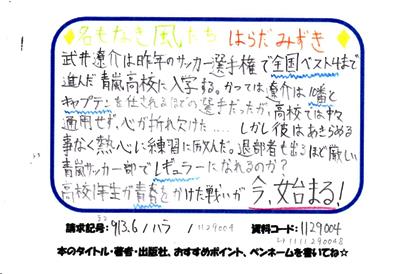 ◆名もなき風たち はらだみずき◆
武井遼介は昨年のサッカー選手権で全国ベスト4まで
進んだ青嵐高校に入学する。かつては遼介は10番と
キャプテンを任されるほどの選手だったが、高校では中々
通用せず、心が折れ欠けた……しかし彼はあきらめる
事なく熱心に練習に励んだ。退部者も出るほど厳しい
青嵐サッカー部でレギュラーになれるのか?
高校1年生が青春をかけた戦いが 今、始まる!
請求記号: 913.6 / ハラ / 1129004 資料コード: 1129004
本のタイトル・著者・出版社、おすすめポイント、ペンネームを書いてね☆